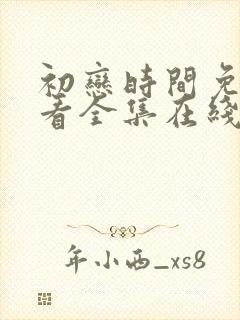 初戀時間免
看全集在綫
年小西_xs8